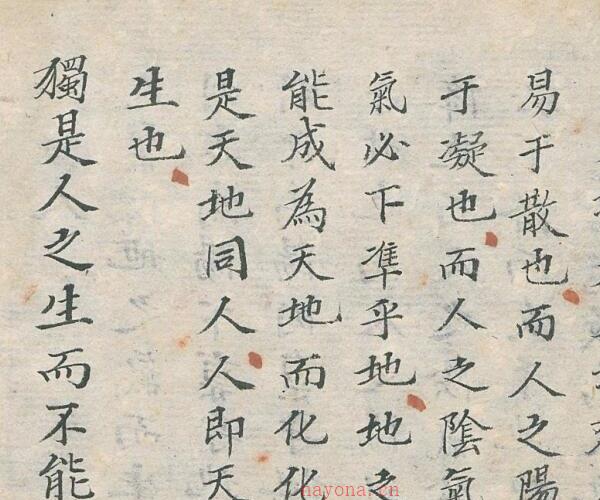 易于散也而人之陽
于凝也而人之陰氣
氣必下凖乎地地之
能成為天地而化化
是天地同人人即天
生也
獨是人之生而不能
nayona.cn